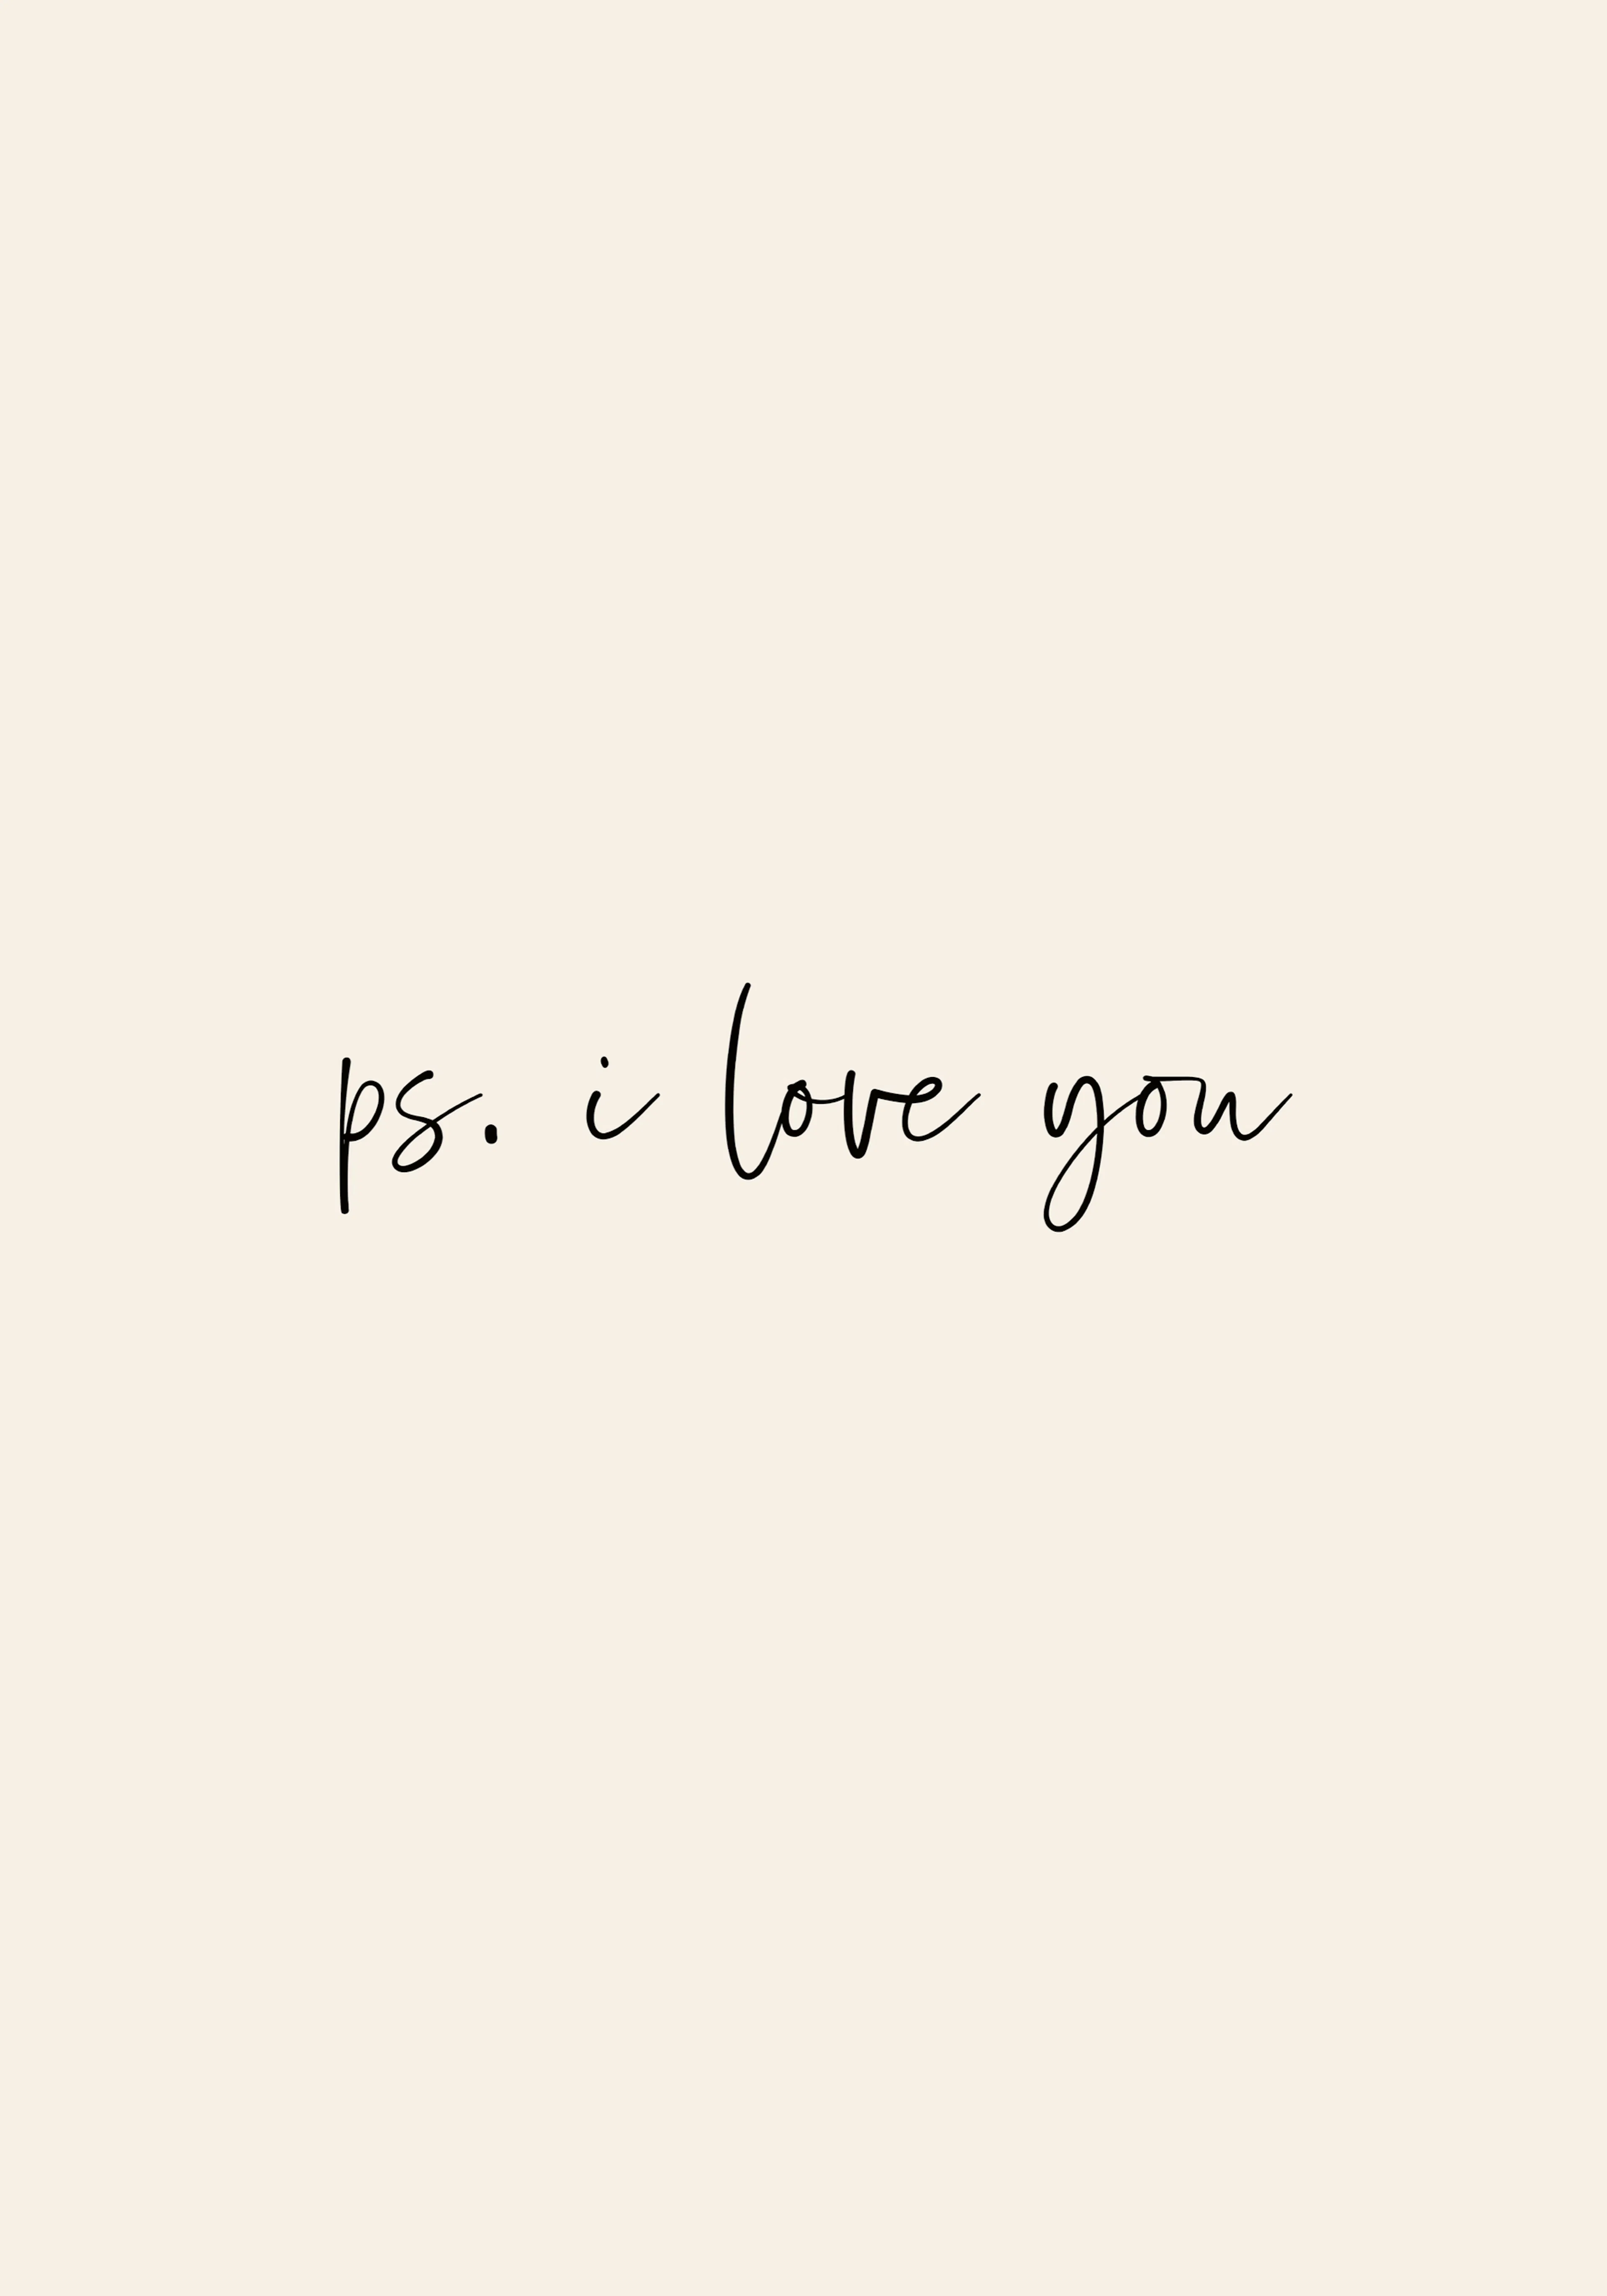 ps. i love you